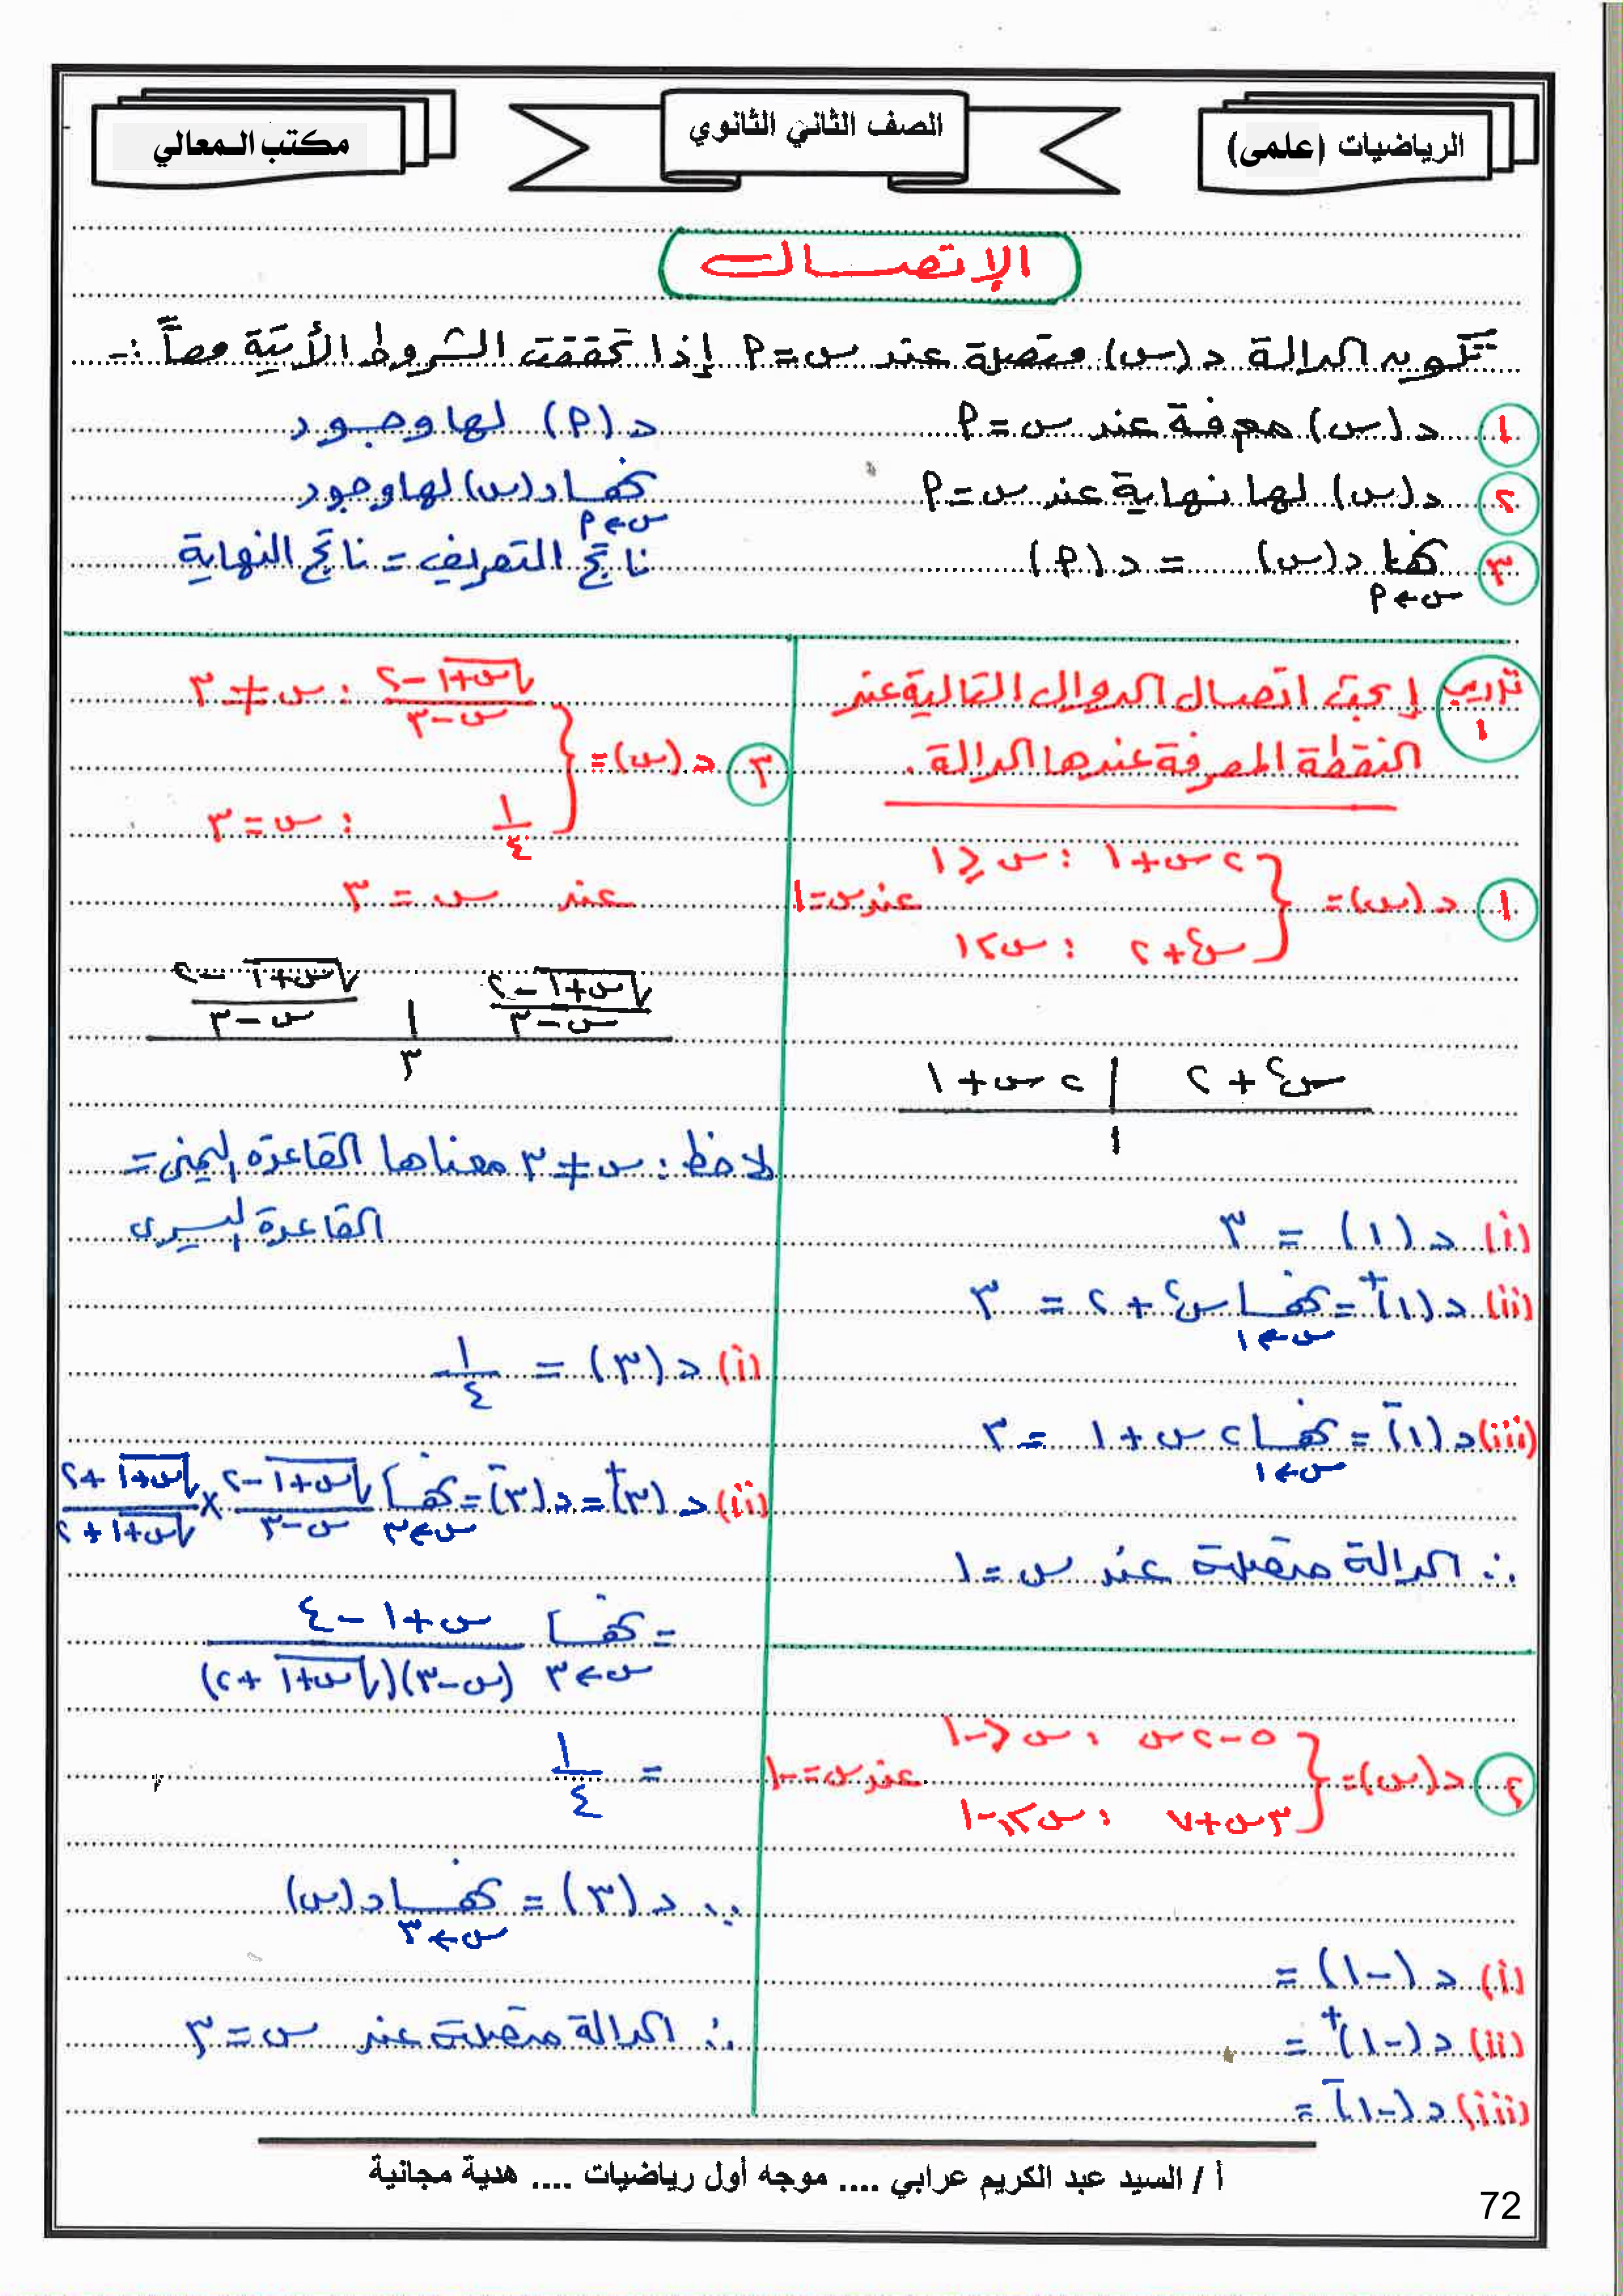 الرياضيات (علمى)
الصف الثاني الثانوي
مكتب المعالي
الإتصال
تكون الدالة د(س) متصلة عند س=٩ إذا تحققت الشروط الأتية معاً :-
١ د(س) معرفة عند س=٩ د(٩) لها وجود
٢ د(س) لها نهاية عند س=٩ نهـا د(س) لها وجود
س←٩
٣ نهـا د(س) = د(٩) ناتج التعريف = ناتج النهاية
س←٩
تدريب ١ إبحث اتصال الدوال التالية عند
النقطة المعرفة عندها الدالة.
١ د(س)= { ٢س+١ : س≤١
س٢+٢ : س>١ عند س=١
٢س+١ | س٢+٢
١
(i) د(١) = ٣
(ii) د(١)+ = نهـا س٢+٢ = ٣
س←١
(iii) د(١)- = نهـا ٢س+١ = ٣
س←١
∴ الدالة متصلة عند س=١
٢ د(س)= { ٥-٢س : س<-١
٣س+٧ : س≥-١ عند س=-١
(i) د(-١) =
(ii) د(-١)+ =
(iii) د(-١)- =
٣ د(س)= { (√(س+١)-٢)/(س-٣) : س≠٣
١/٤ : س=٣
عند س = ٣
(√(س+١)-٢)/(س-٣) | (√(س+١)-٢)/(س-٣)
٣
لاحظ: س≠٣ معناها القاعدة اليمنى =
القاعدة اليسرى
(i) د(٣) = ١/٤
(ii) د(٣)+ = د(٣)- = نهـا (√(س+١)-٢)/(س-٣) × (√(س+١)+٢)/(√(س+١)+٢)
س←٣
= نهـا (س+١-٤)/((س-٣)(√(س+١)+٢))
س←٣
= ١/٤
∵ د(٣) = نهـا د(س)
س←٣
∴ الدالة متصلة عند س=٣
أ / السيد عبد الكريم عرابي .... موجه أول رياضيات .... هدية مجانية
72